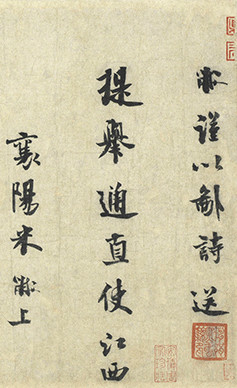 黻謹以鄙詩送
提舉通直使江西
襄陽米黻上